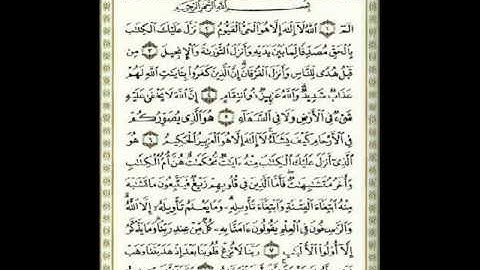 بِسْمِ اللَّهِ الرَّحْمَٰنِ الرَّحِيمِ
الٓمٓ ١ اللَّهُ لَا إِلَٰهَ إِلَّا هُوَ الْحَيُّ الْقَيُّومُ ٢ نَزَّلَ عَلَيْكَ الْكِتَابَ
بِالْحَقِّ مُصَدِّقًا لِمَا بَيْنَ يَدَيْهِ وَأَنزَلَ التَّوْرَاةَ وَالْإِنجِيلَ ٣ مِن
قَبْلُ هُدًى لِلنَّاسِ وَأَنزَلَ الْفُرْقَانَ إِنَّ الَّذِينَ كَفَرُوا بِآيَاتِ اللَّهِ لَهُمْ
عَذَابٌ شَدِيدٌ وَاللَّهُ عَزِيزٌ ذُو انتِقَامٍ ٤ إِنَّ اللَّهَ لَا يَخْفَىٰ عَلَيْهِ
شَيْءٌ فِي الْأَرْضِ وَلَا فِي السَّمَاءِ ٥ هُوَ الَّذِي يُصَوِّرُكُمْ
فِي الْأَرْحَامِ كَيْفَ يَشَاءُ لَا إِلَٰهَ إِلَّا هُوَ الْعَزِيزُ الْحَكِيمُ ٦ هُوَ
الَّذِي أَنزَلَ عَلَيْكَ الْكِتَابَ مِنْهُ آيَاتٌ مُحْكَمَاتٌ هُنَّ أُمُّ الْكِتَابِ
وَأُخَرُ مُتَشَابِهَاتٌ فَأَمَّا الَّذِينَ فِي قُلُوبِهِمْ زَيْغٌ فَيَتَّبِعُونَ مَا تَشَابَهَ
مِنْهُ ابْتِغَاءَ الْفِتْنَةِ وَابْتِغَاءَ تَأْوِيلِهِ وَمَا يَعْلَمُ تَأْوِيلَهُ إِلَّا اللَّهُ
وَالرَّاسِخُونَ فِي الْعِلْمِ يَقُولُونَ آمَنَّا بِهِ كُلٌّ مِنْ عِندِ رَبِّنَا وَمَا يَذَّكَّرُ
إِلَّا أُولُو الْأَلْبَابِ ٧ رَبَّنَا لَا تُزِغْ قُلُوبَنَا بَعْدَ إِذْ هَدَيْتَنَا وَهَبْ